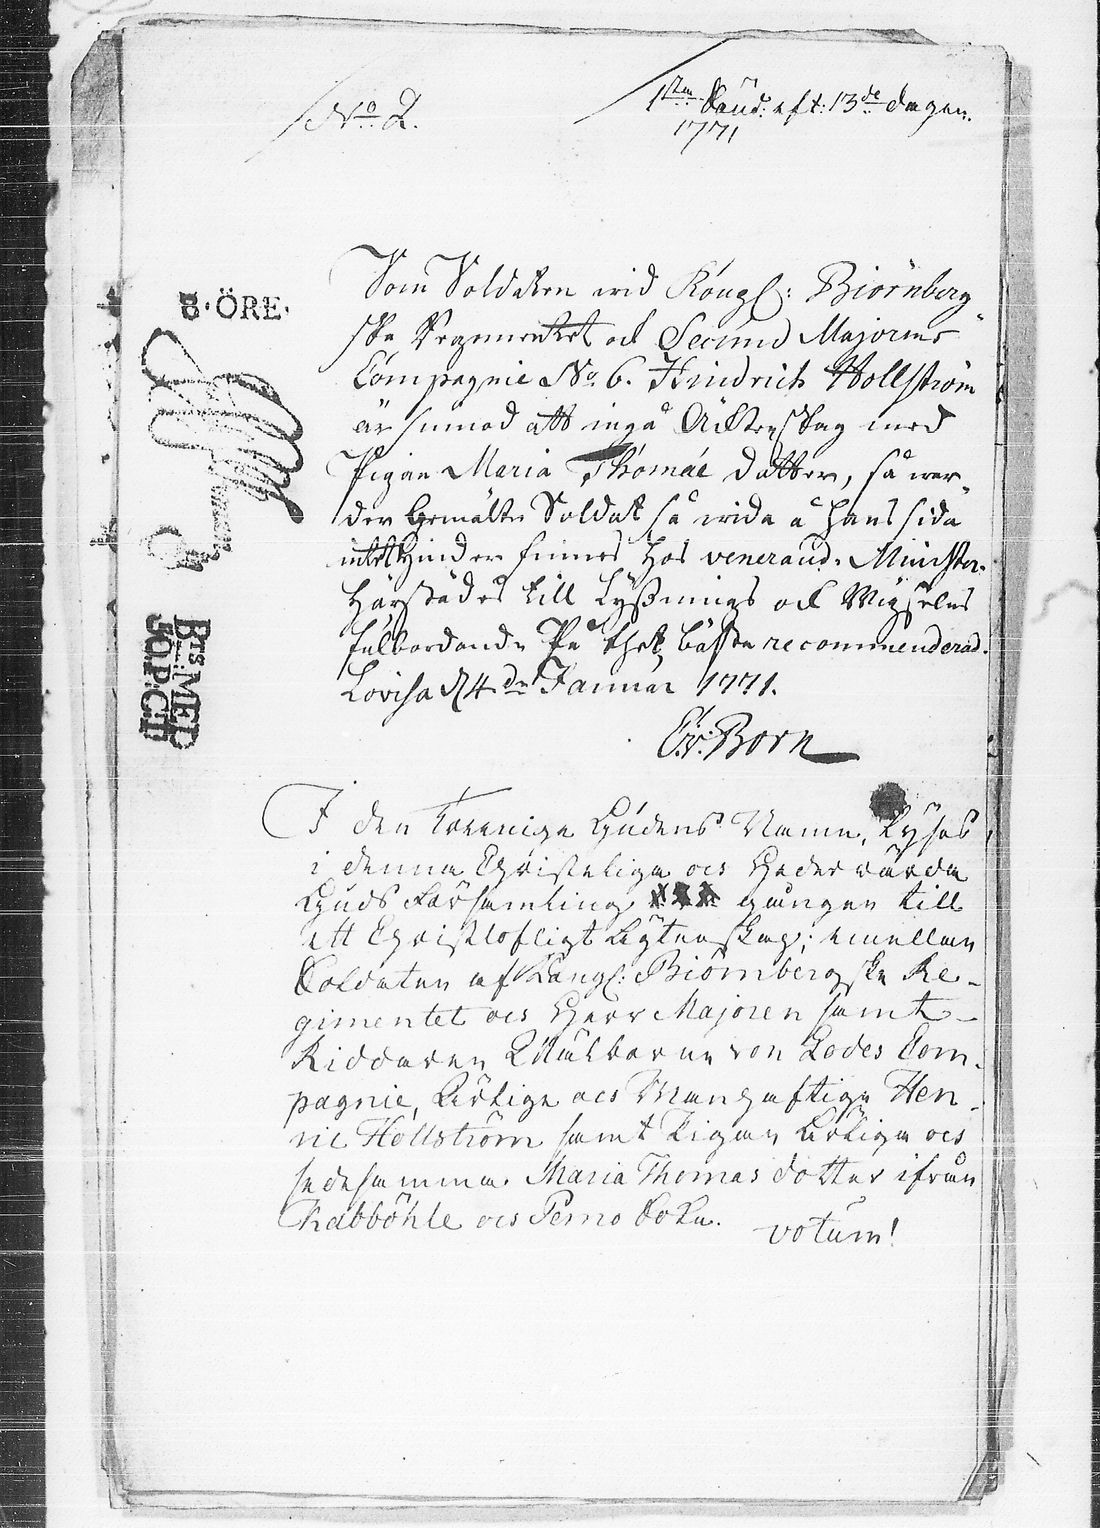 No 2.
1sta Sönd: eft: 13de dagen.
1771
8·ÖRE·
BTS MED
50.P:CT.
Som Soldaten wid Kongl: Biörneborg
ska Regementet och Second Majorens
Compagnie No 6. Hindrich Hollström
är sinnad att ingå Äcktenskap med
Pigan Maria Thomæ Dotter, så war
der bemälte Soldat så wida å hans sida
intet hinder finnes hos venerand. Minister.
härstädes till Lyßnings och Wigselns
fulbordande På thet bästa recommenderad.
Lovisa d 4de Januar 1771.
C.v. Born
I den Treeniga Gudens Namn, Lyses
i denna Christeliga och Heder wärda
Guds Församling gången till
ett Christlofligt Ägtenskap; emellan
Soldaten af Kongl: Biörnbergska Re-
gimentet och Herr Majoren samt
Riddaren von Lodes Com-
pagnie, Ärliga och Manhaftiga Hen-
ric Hollström samt Pigan Ärliga och
sedesamma Maria Thomas dotter ifrån
Chabböhle och Perno Sokn.
votum!